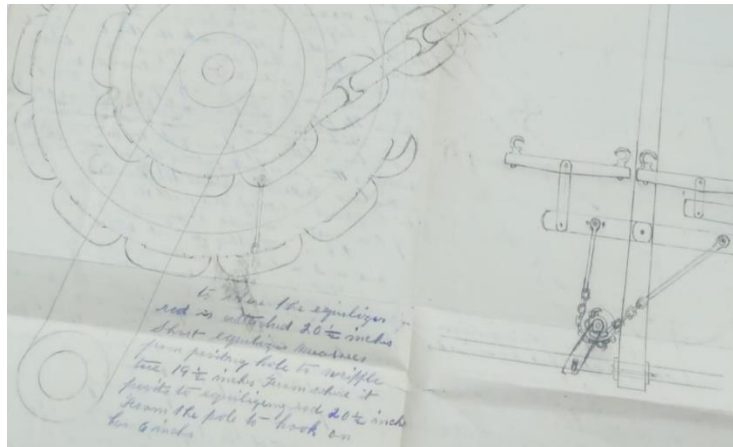 to where the equilizer
rod is attached 20 ½ inches
Short equilizer measures
from poiting hole to
tree 19 ½ inches From where it
povits to equilizeing rod 20 ½ inches
From the pole to hook on
6 inches